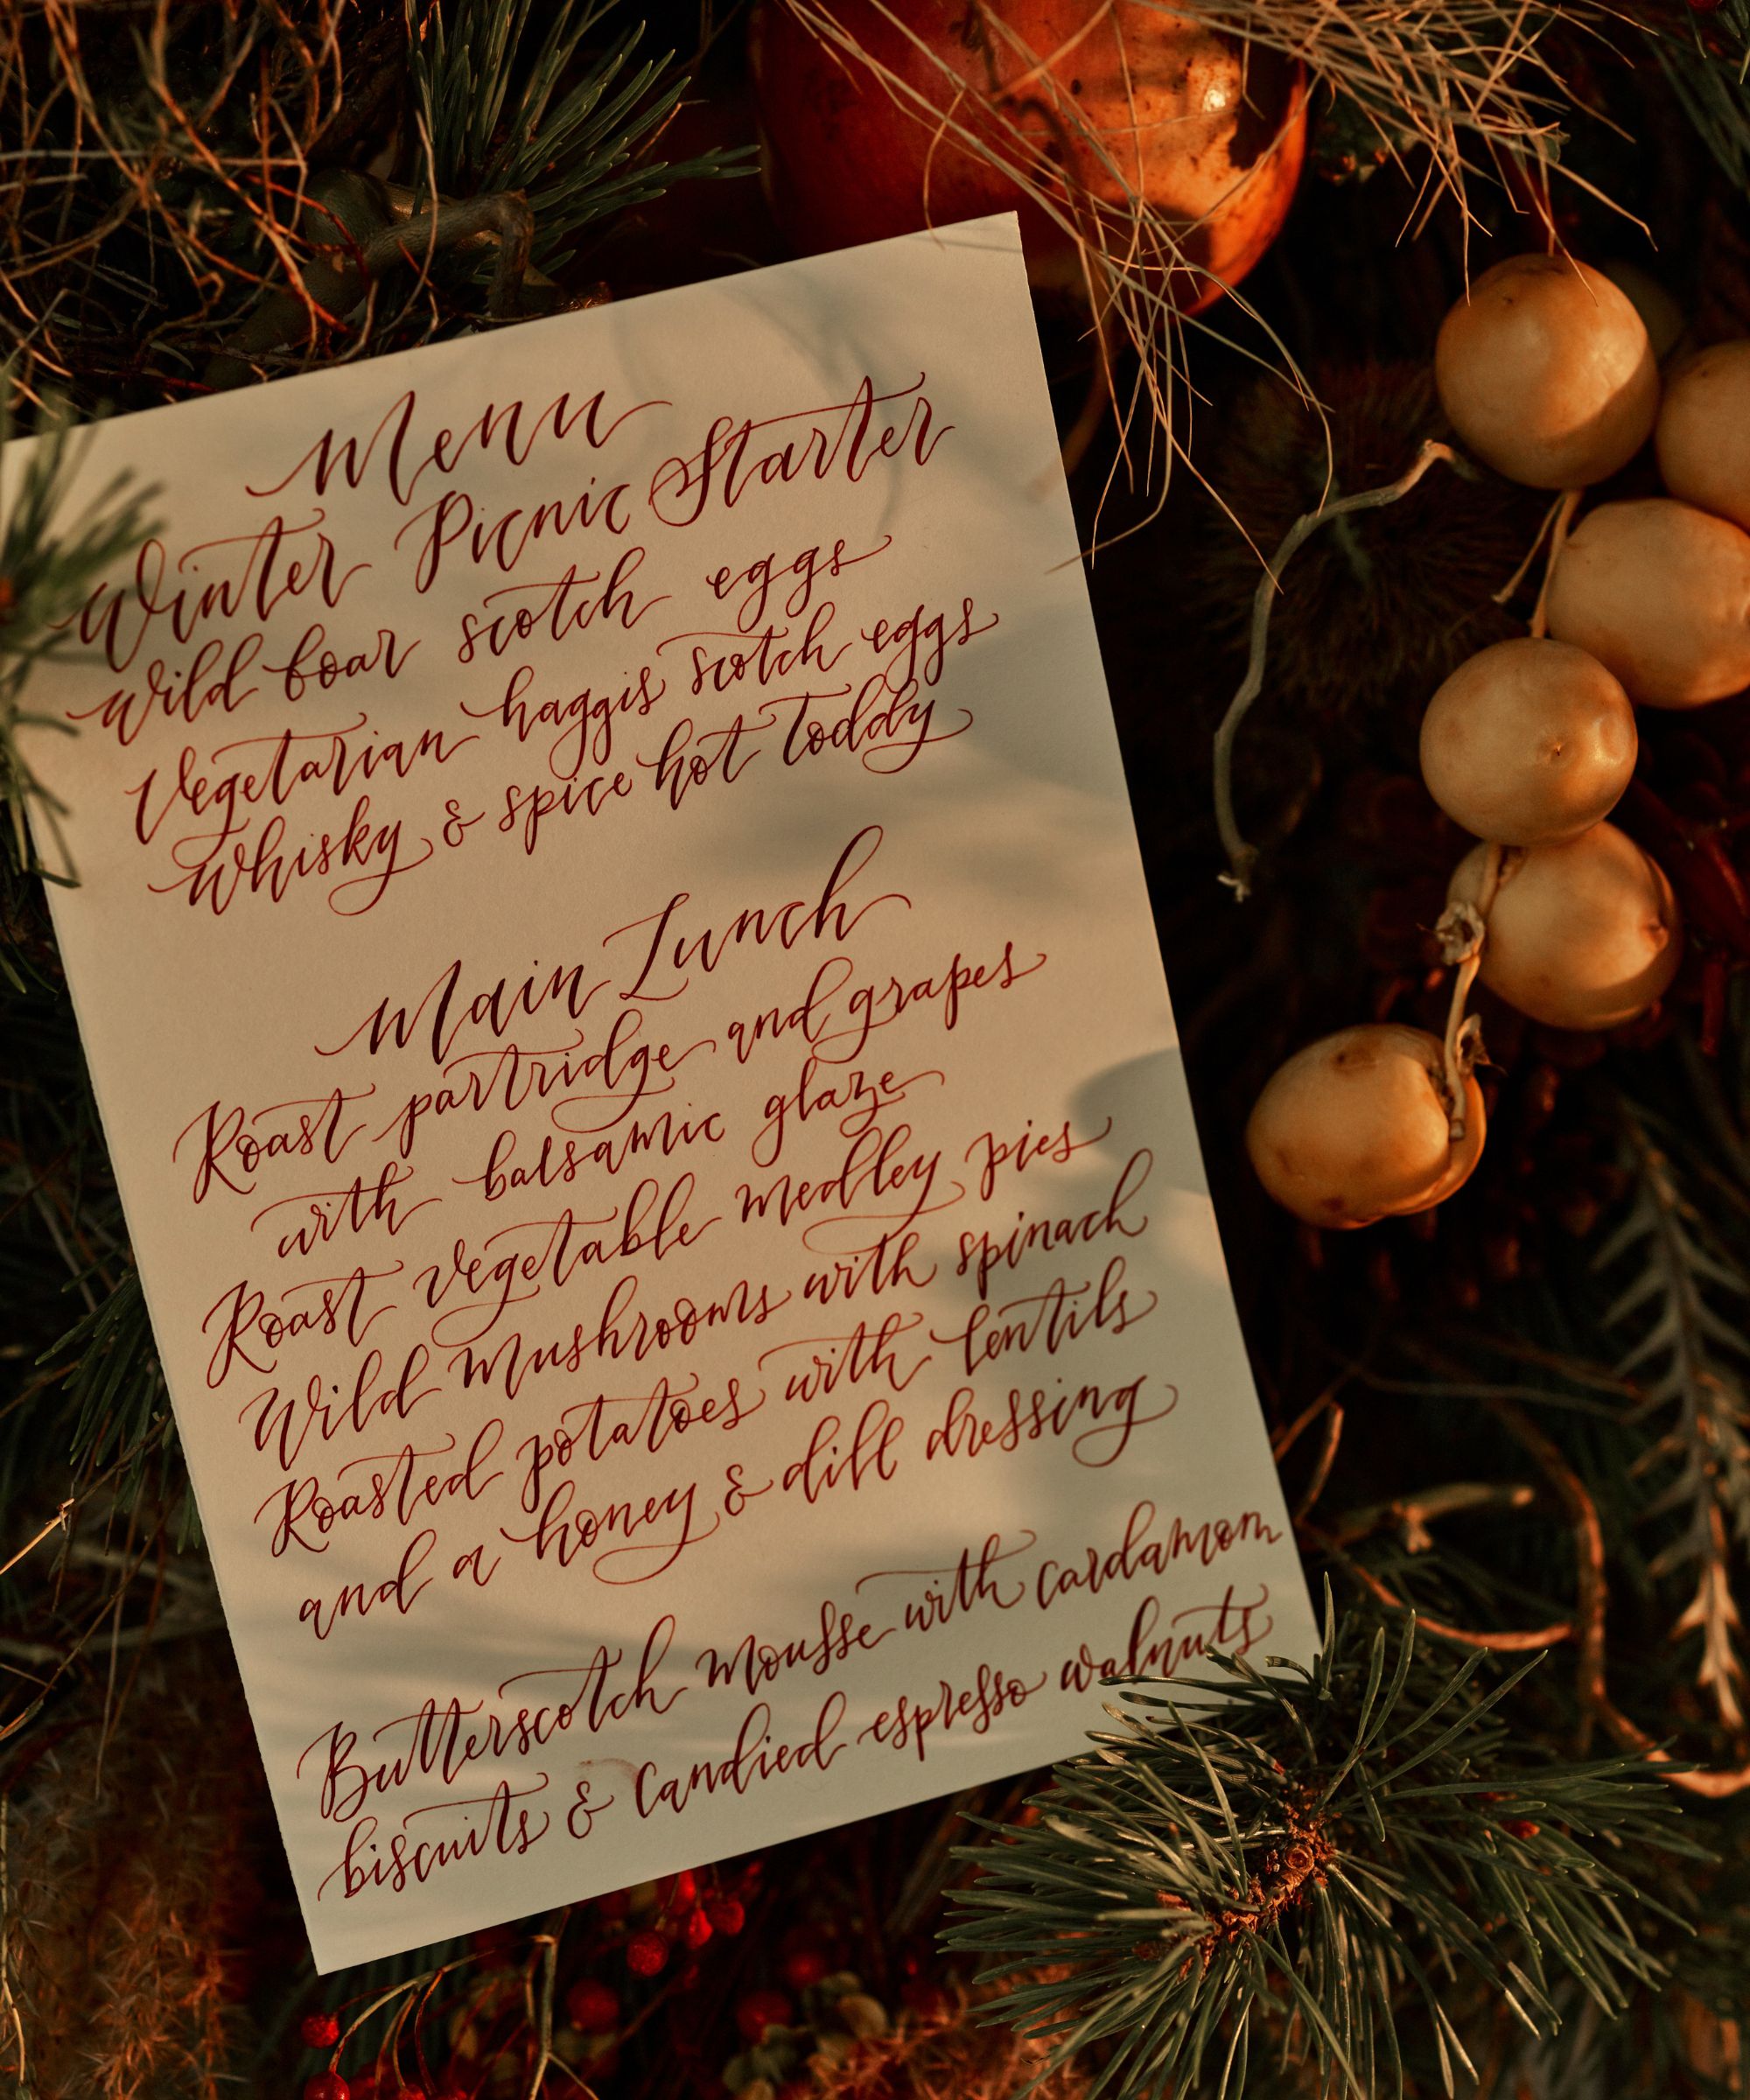 Menu
Winter Picnic Starter
Wild boar scotch eggs
Vegetarian haggis scotch eggs
Whisky & spice hot toddy
Main Lunch
Roast partridge and grapes
with balsamic glaze
Roast vegetable medley pies
Wild mushrooms with spinach
Roasted potatoes with lentils
and a honey & dill dressing
Butterscotch mousse with cardamom
biscuits & candied espresso walnuts